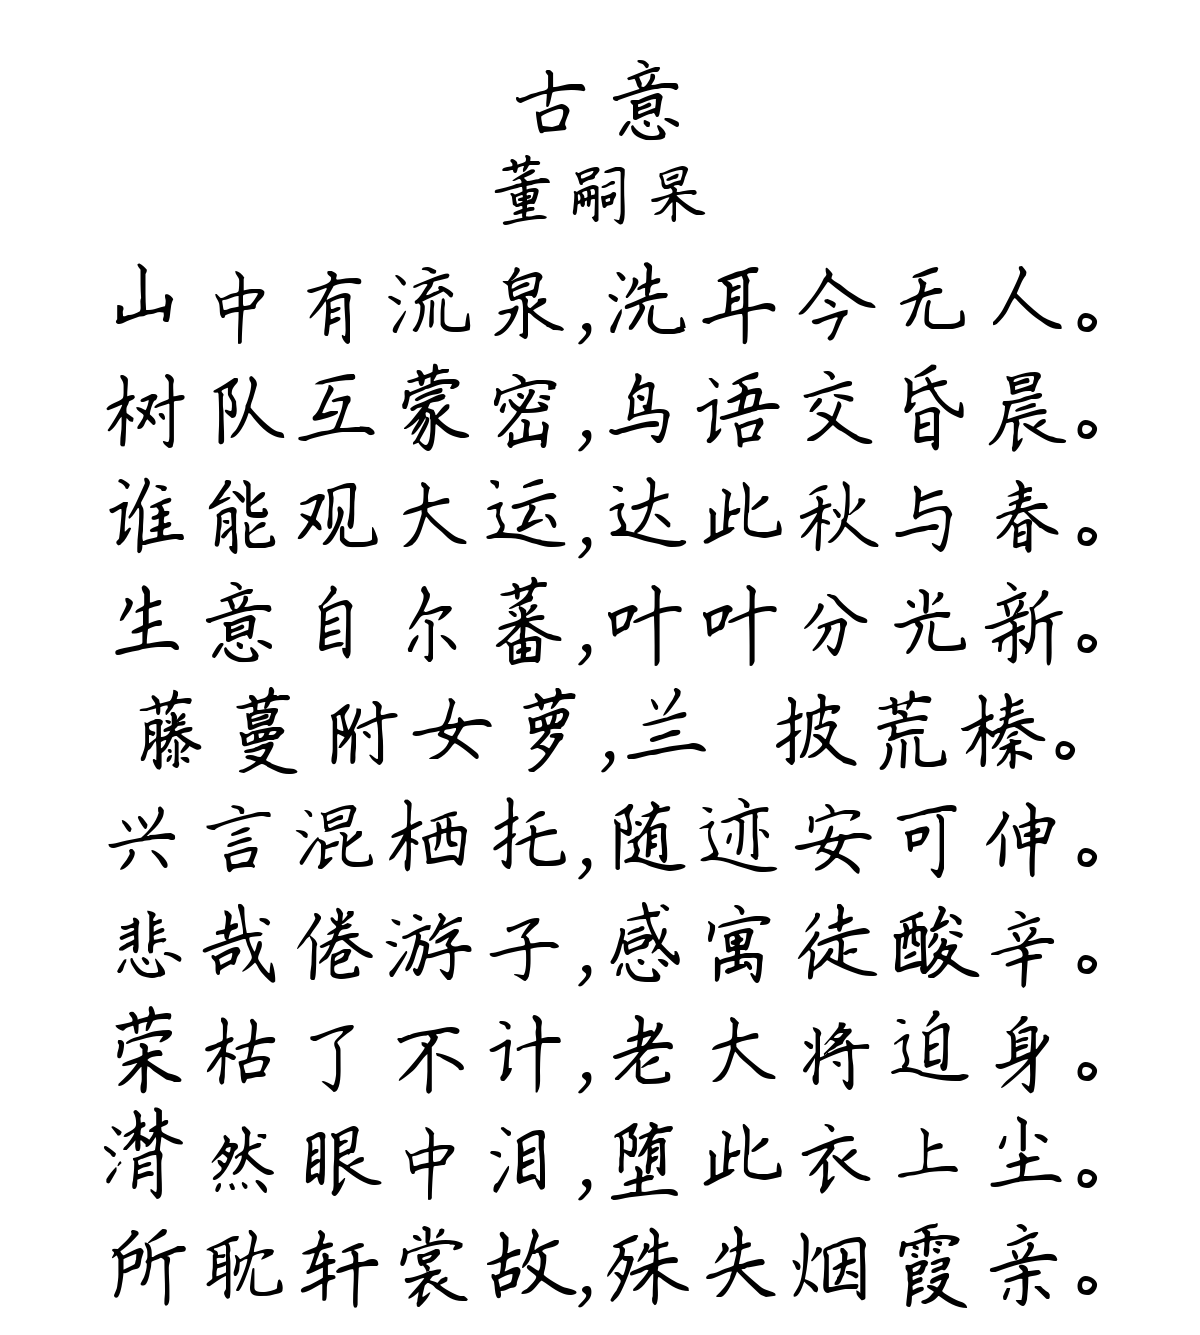 古意
董嗣杲
山中有流泉,洗耳今无人。
树队互蒙密,鸟语交昏晨。
谁能观大运,达此秋与春。
生意自尔蕃,叶叶分光新。
藤蔓附女萝,兰 披荒榛。
兴言混栖托,随迹安可伸。
悲哉倦游子,感寓徒酸辛。
荣枯了不计,老大将迫身。
潸然眼中泪,堕此衣上尘。
所耽轩裳故,殊失烟霞亲。